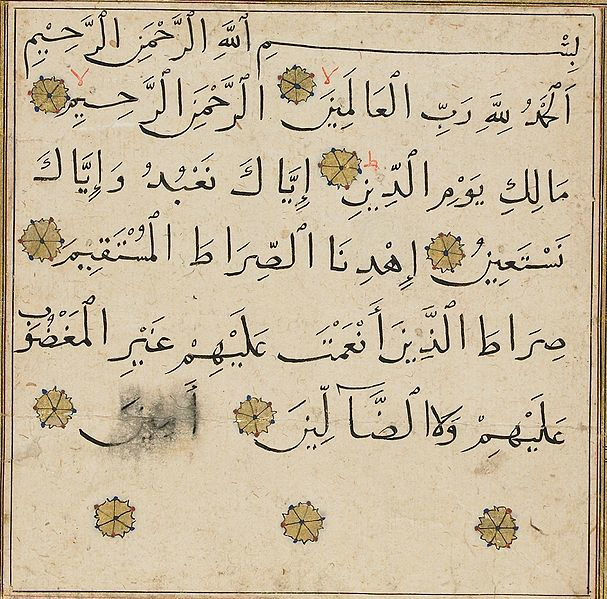 بِسْمِ اللهِ الرَّحْمٰنِ الرَّحِيْمِ
اَلْحَمْدُ لِلّٰهِ رَبِّ الْعَالَمِيْنَ لا الرَّحْمٰنِ الرَّحِيْمِ لا
مَالِكِ يَوْمِ الدِّيْنِ ط إِيَّاكَ نَعْبُدُ وَإِيَّاكَ
نَسْتَعِيْنُ إِهْدِنَا الصِّرَاطَ الْمُسْتَقِيْمَ
صِرَاطَ الَّذِيْنَ أَنْعَمْتَ عَلَيْهِمْ غَيْرِ الْمَغْضُوْبِ
عَلَيْهِمْ وَلَا الضَّآلِّيْنَ أَمِيْنَ